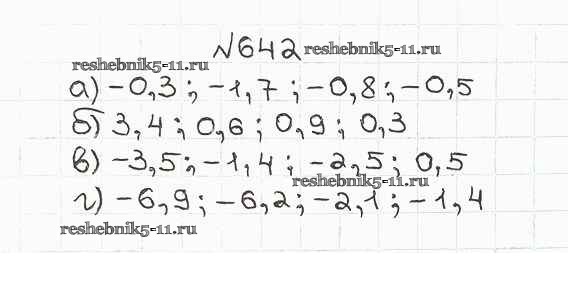 №642 reshebnik5-11.ru
reshebnik5-11.ru
а) -0,3; -1,7; -0,8; -0,5
б) 3,4; 0,6; 0,9; 0,3
в) -3,5; -1,4; -2,5; 0,5
reshebnik5-11.ru
г) -6,9; -6,2; -2,1; -1,4
reshebnik5-11.ru